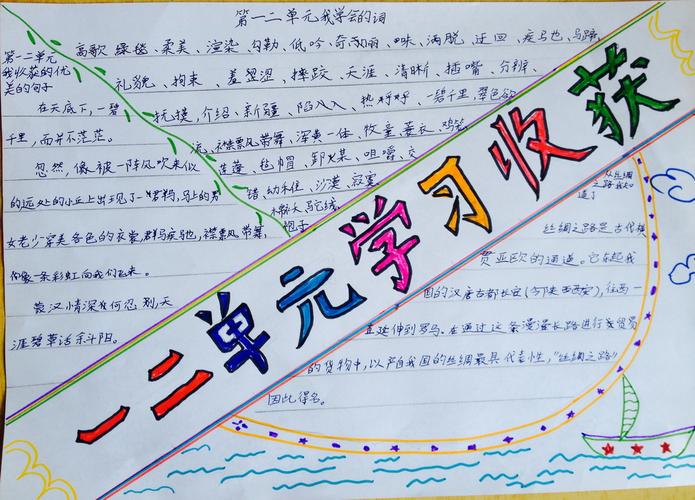 第一二单元我学会的词
高歌、绿毯、柔美、渲染、勾勒、低吟、奇丽、洒脱、迂回、疾马也、马蹄、
礼貌、拘束、羞涩、摔跤、天涯、清晰、插嘴、分辨、
抚摸、介绍、新疆、陷入、热乎乎、一碧千里、翠色欲
流、襟飘带舞、浑为一体、牧童、蓑衣、鸡笼
莲蓬、毡帽、卸煤、咀嚼、交
错、幼稚、沙漠、寂寞
棉袄、驼绒
袍子
第一二单元
我收获的优
美的句子
在天底下，一碧
千里，而并不茫茫。
忽然，像被一阵风吹来似
的远处的小丘上出现了一群马，马上的男
女老少穿着各色的衣裳，群马疾驰，襟飘带舞，
像一条彩虹向我们飞来。
蒙汉情深何忍别，天
涯碧草话斜阳。
一二单元学习收获
从丝绸
之路我知
道了
丝绸之路是古代横
贯亚欧的通道。它东起我
国的汉唐古都长安(今陕西西安)，往西一
直延伸到罗马。在通过这条漫漫长路进行贸易
的货物中，以产自我国的丝绸最具代表性，“丝绸之路”
因此得名。